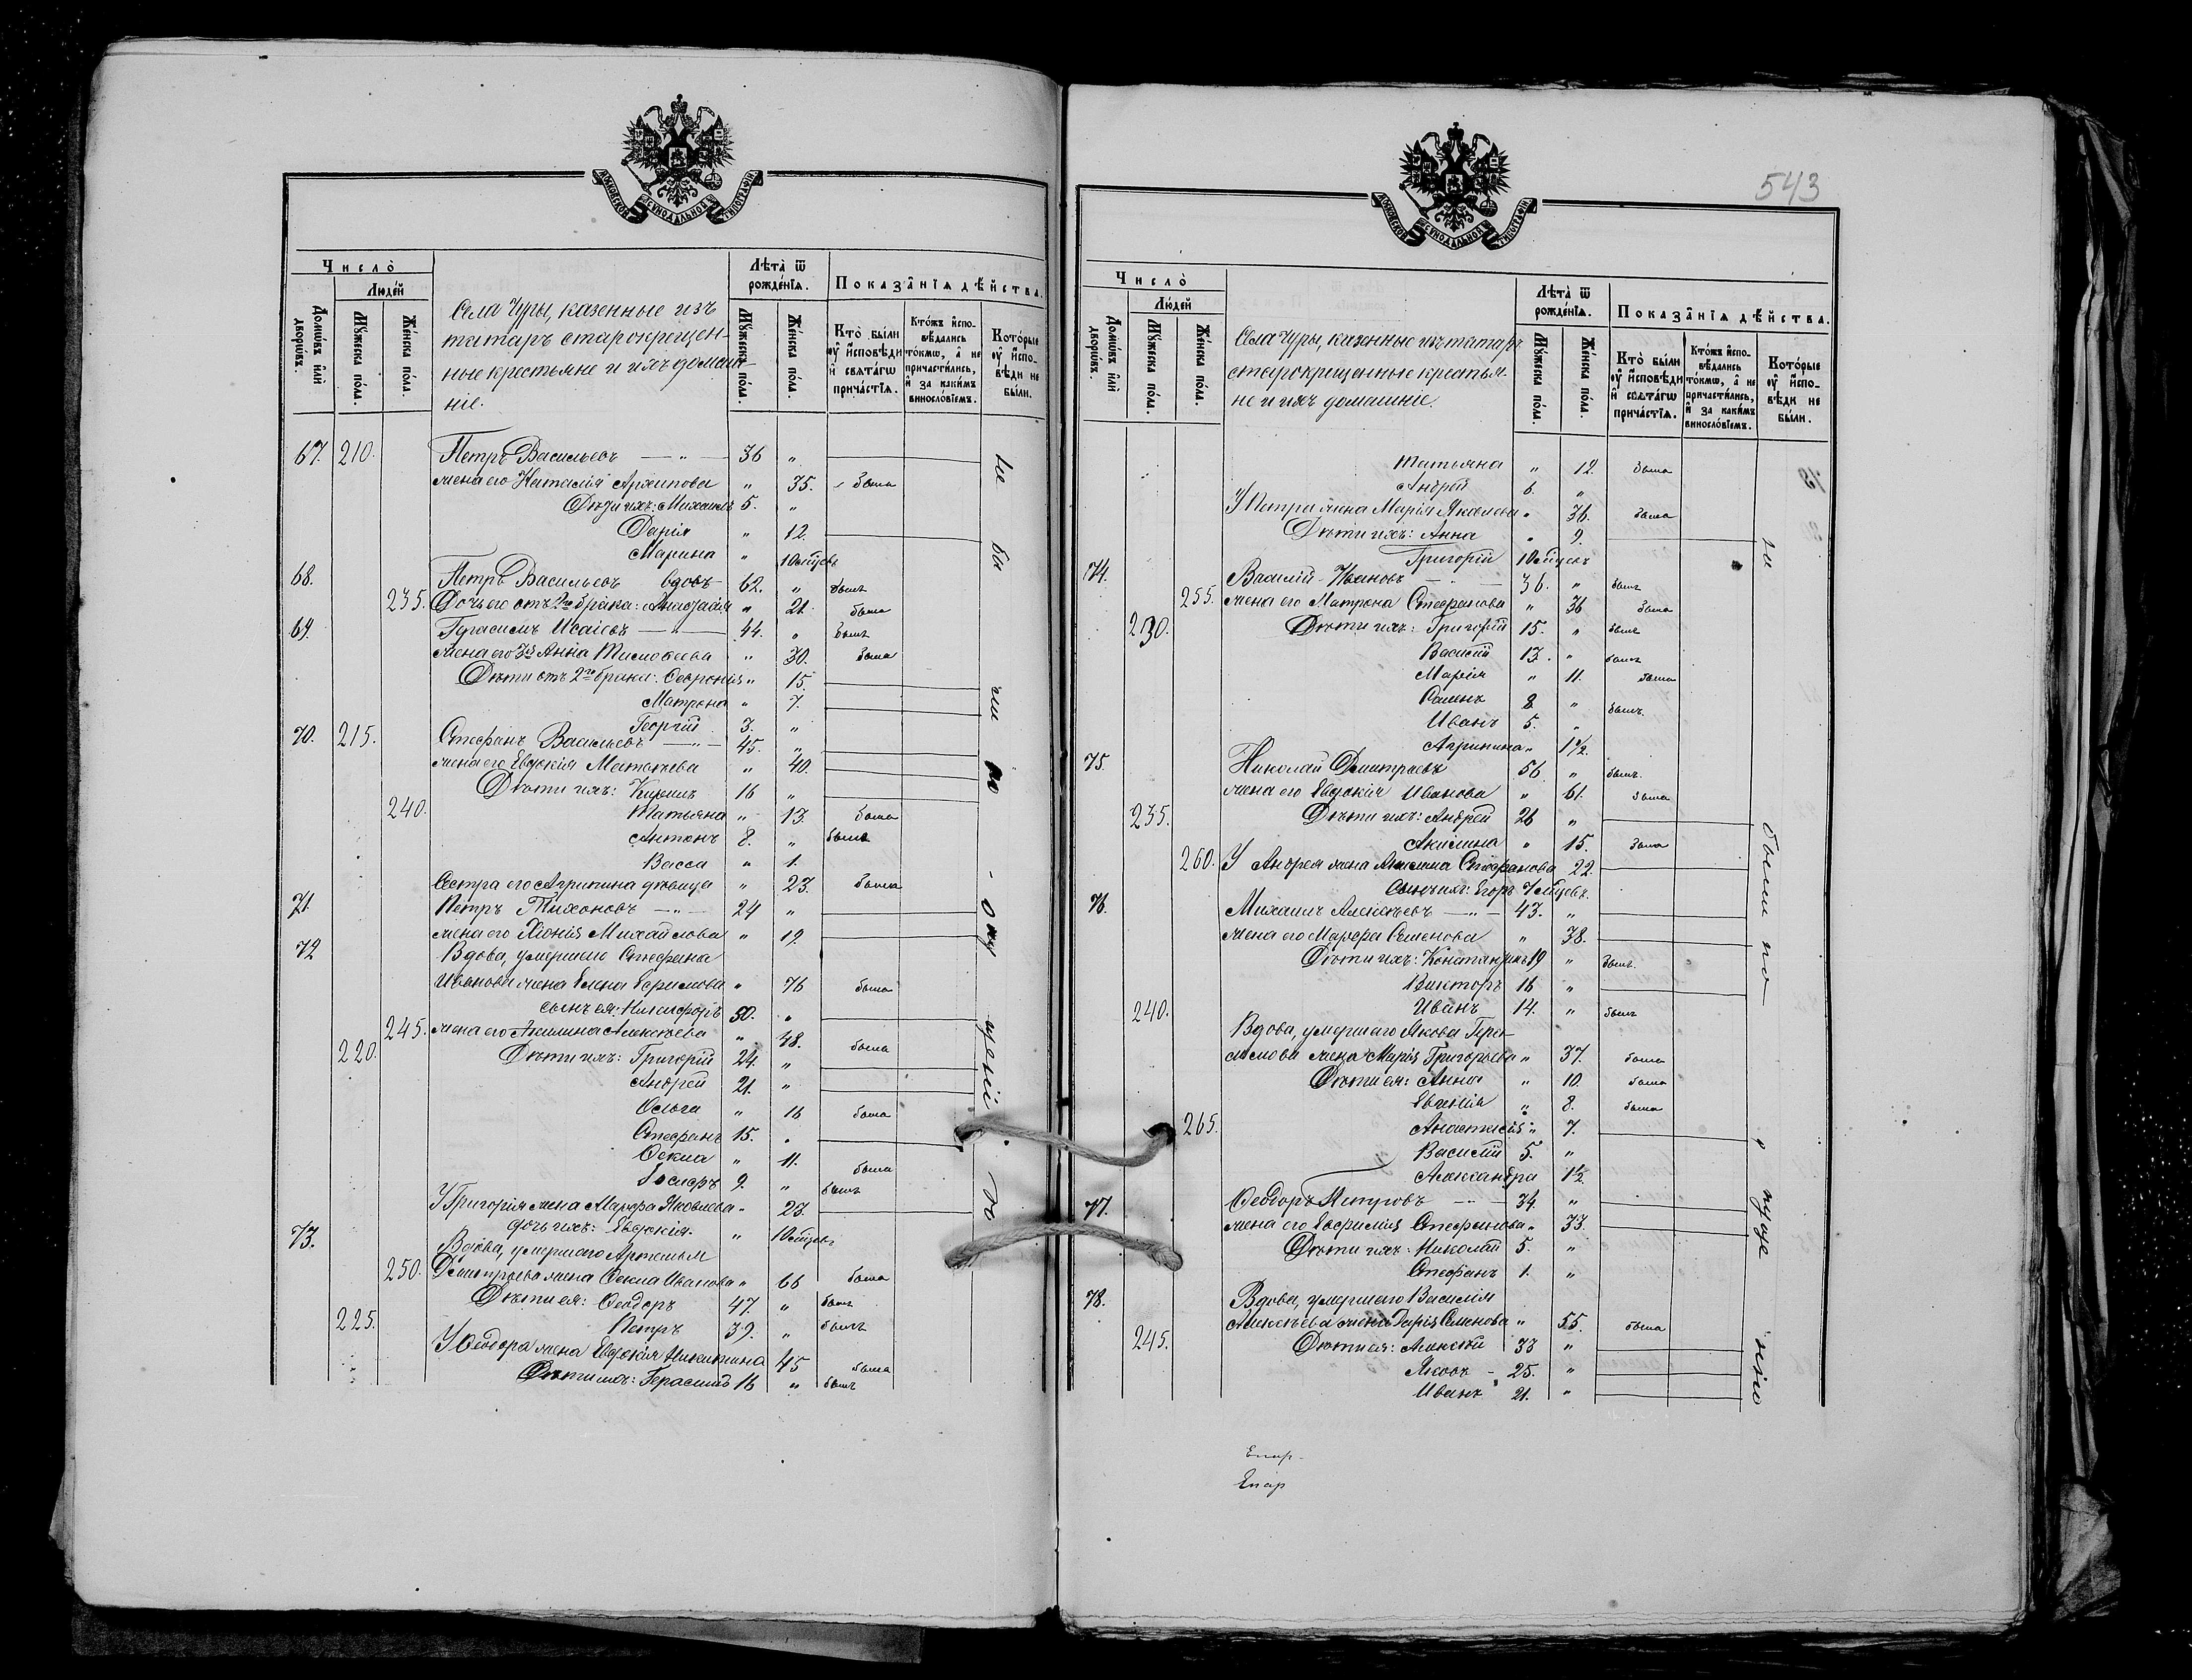 МОСКОВСКОЙ СѴНОДАЛЬНОЙ ТИПОГРАФІИ
Число̀
Люде́й
Домѡ́въ и҆лѝ дворѡ́въ.
Мꙋ́жеска по́ла.
Же́нска по́ла.
Села Чуры, казенные изъ
татаръ старокрещен-
ные крестьяне и ихъ домаш-
ніе.
Лѣта̀ ѿ рожде́нїѧ.
Мꙋ́жеска по́ла.
Же́нска по́ла.
Показа̑нїѧ дѣ́йства.
Кто̀ бы́ли ᲂу҆ и҆сповѣди и҆ свѧта́гѡ прича́стїѧ.
Кто́жъ и҆спо-
вѣдались
то́кмѡ, а҆ не
причасти́лись,
и҆ за каки́мъ
винословіемъ.
Кото́рые ᲂу҆ и҆спо-
вѣди не
бы́ли.
67. 210. Петръ Васильевъ — " — 36 "
жена его Наталія Архипова " 35. была
Дѣти ихъ: Михаилъ 5. "
Дарія " 12.
Марина " 10 мѣсяц.
68. Петръ Васильевъ вдовъ 62. " былъ
235. Дочь его отъ 2го брака: Анастасія " 21. была
69. Герасимъ Исаіевъ — " — 44. " былъ
жена его 3я Анна Тимофеева " 30. была
Дѣти отъ 2го брака: Февронія " 15.
Матрона " 7.
Георгій 3. "
70. 215. Стефанъ Васильевъ — " — 45. "
жена его Евдокія Матвѣева " 40.
Дѣти ихъ: Кириллъ 16 "
240. Татьяна " 13. была
Антонъ 8. " былъ
Васса " 1.
Сестра его Агрипина дѣвица " 23. была
71. Петръ Тихоновъ — " — 24 "
жена его Хіонія Михайлова " 19.
72 Вдова, умершаго Стефана
Иванова жена Елена Ефимова " 76 была
сынъ ея: Никифоръ 50. "
245. жена его Акилина Алексѣева " 48. была
220. Дѣти ихъ: Григорій 24. "
Андрей 21. "
Ольга " 16 была
Стефанъ 15. "
Фекла " 11. была
Іосифъ 9. " былъ
У Григорія жена Марфа Яковлева " 23.
дочь ихъ: Евдокія. " 10 мѣсяц.
73. Вдова, умершаго Артемія
250. Дмитріева жена Фекла Иванова " 66 была
Дѣти ея: Феодоръ 47. " былъ
225. Петръ 39. " былъ
У Феодора жена Евдокія Никитина 45 была
Дѣти ихъ: Герасимъ 16 " былъ
Не бы ли по - опу щенію. Во
543
МОСКОВСКОЙ СѴНОДАЛЬНОЙ ТИПОГРАФІИ
Число̀
Люде́й
Домѡ́въ и҆лѝ дворѡ́въ.
Мꙋ́жеска по́ла.
Же́нска по́ла.
Села Чуры, казенные изъ татаръ
старокрещенные крестья-
не и ихъ домашніе.
Лѣта̀ ѿ рожде́нїѧ.
Мꙋ́жеска по́ла.
Же́нска по́ла.
Показа̑нїѧ дѣ́йства.
Кто̀ бы́ли ᲂу҆ и҆сповѣди и҆ свѧта́гѡ прича́стїѧ.
Кто́жъ и҆спо-
вѣдались
то́кмѡ, а҆ не
причасти́лись,
и҆ за каки́мъ
винословіемъ.
Кото́рые ᲂу҆ и҆спо-
вѣди не
бы́ли.
Татьяна " 12. была
Андрей 6. "
У Петра жена Марія Яковлева " 36. была
Дѣти ихъ: Анна " 9.
Григорій 10 мѣсяц.
74. Василій Ивановъ 36. " былъ
255. жена его Матрона Стефанова " 36 была
230. Дѣти ихъ: Григорій 15. " былъ
Василій 13. " былъ
Марія " 11. была
Семенъ 8. " былъ.
Иванъ 5. "
Агрипина " 1½.
75. Николай Дмитріевъ 56. " былъ.
жена его Евдокія Иванова " 61. была
235. Дѣти ихъ: Андрей 26 "
Акилина " 15. была
260. У Андрея жена Акилина Стефанова 22.
Сынъ ихъ: Егоръ 7 мѣсяц.
76. Михаилъ Алексѣевъ — " — 43. "
жена его Марфа Семенова " 38.
Дѣти ихъ: Константинъ 19 " былъ.
Викторъ 16 "
240. Иванъ 14. " былъ
Вдова, умершаго Якова Гера-
симова жена Марія Григорьева " 37. была
Дѣти ея: Анна " 10. была
Евгенія " 8. была
265. Анастасія " 7.
Василій 5. "
Александра 1½.
77. Феодоръ Петровъ 34. "
жена его Евфимія Стефанова " 33.
Дѣти ихъ: Николай 5. "
Стефанъ 1. "
78. Вдова, умершаго Василія
Алексѣева жена Дарія Семенова " 55. была
245. Дѣти ея: Алексѣй 33 "
Яковъ - 25. "
Иванъ 21. "
не были по
Епар-
Епар